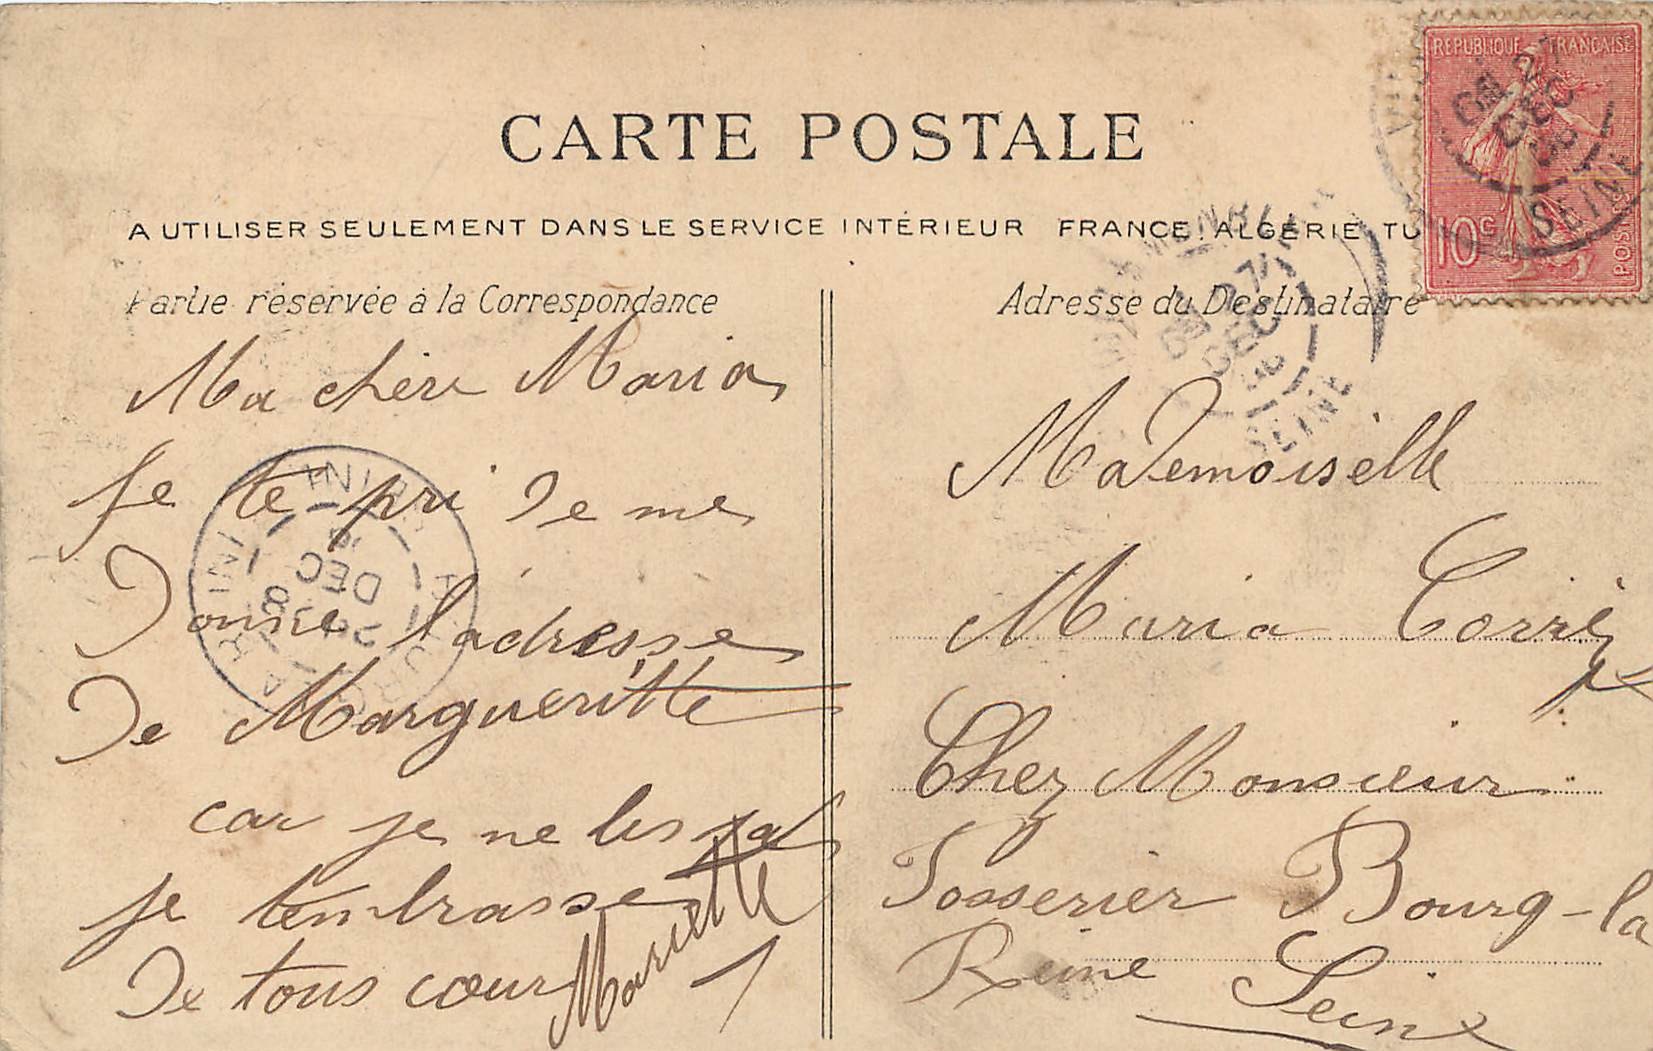 CARTE POSTALE
A UTILISER SEULEMENT DANS LE SERVICE INTÉRIEUR FRANCE, ALGÉRIE TU
Partie réservée à la Correspondance
Ma chère Maria
Je te pri de me
donne l'adresse
de Margueritte
car je ne les pas
je t'embrasse
de tous cœur Mariette
Adresse du Destinataire
Mademoiselle
Maria
Chez Monsieur
Bourg-la
Reine Seine
REPUBLIQUE FRANÇAISE
10c
POSTES
27
DEC
06
SEINE
27
DEC
06
SEINE
DEC